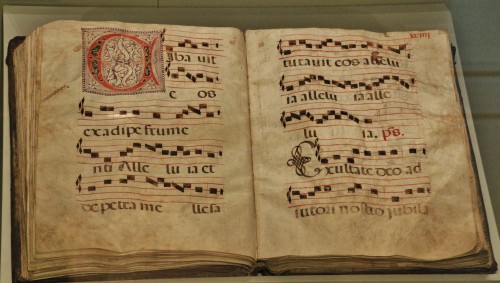 Cibavit
eos
ex adipe frume
nti Alle luia et
de petra me lle sa
xviiij
turavit eos allelu
ia allelu ia alle
lu ia. ps.
Exultate deo ad
iutori nostro jubila